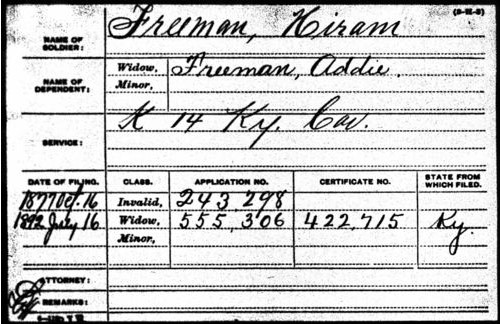 (3-U-3)
NAME OF SOLDIER: Freeman, Hiram
NAME OF DEPENDENT: Widow, Freeman, Addie.
Minor,
SERVICE: K 14 Ky. Cav.
DATE OF FILING. CLASS. APPLICATION NO. CERTIFICATE NO. STATE FROM WHICH FILED.
1877 Oct. 16 Invalid, 243 298
1892 July 16 Widow, 555,306 422,715 Ky.
Minor,
ATTORNEY:
REMARKS: